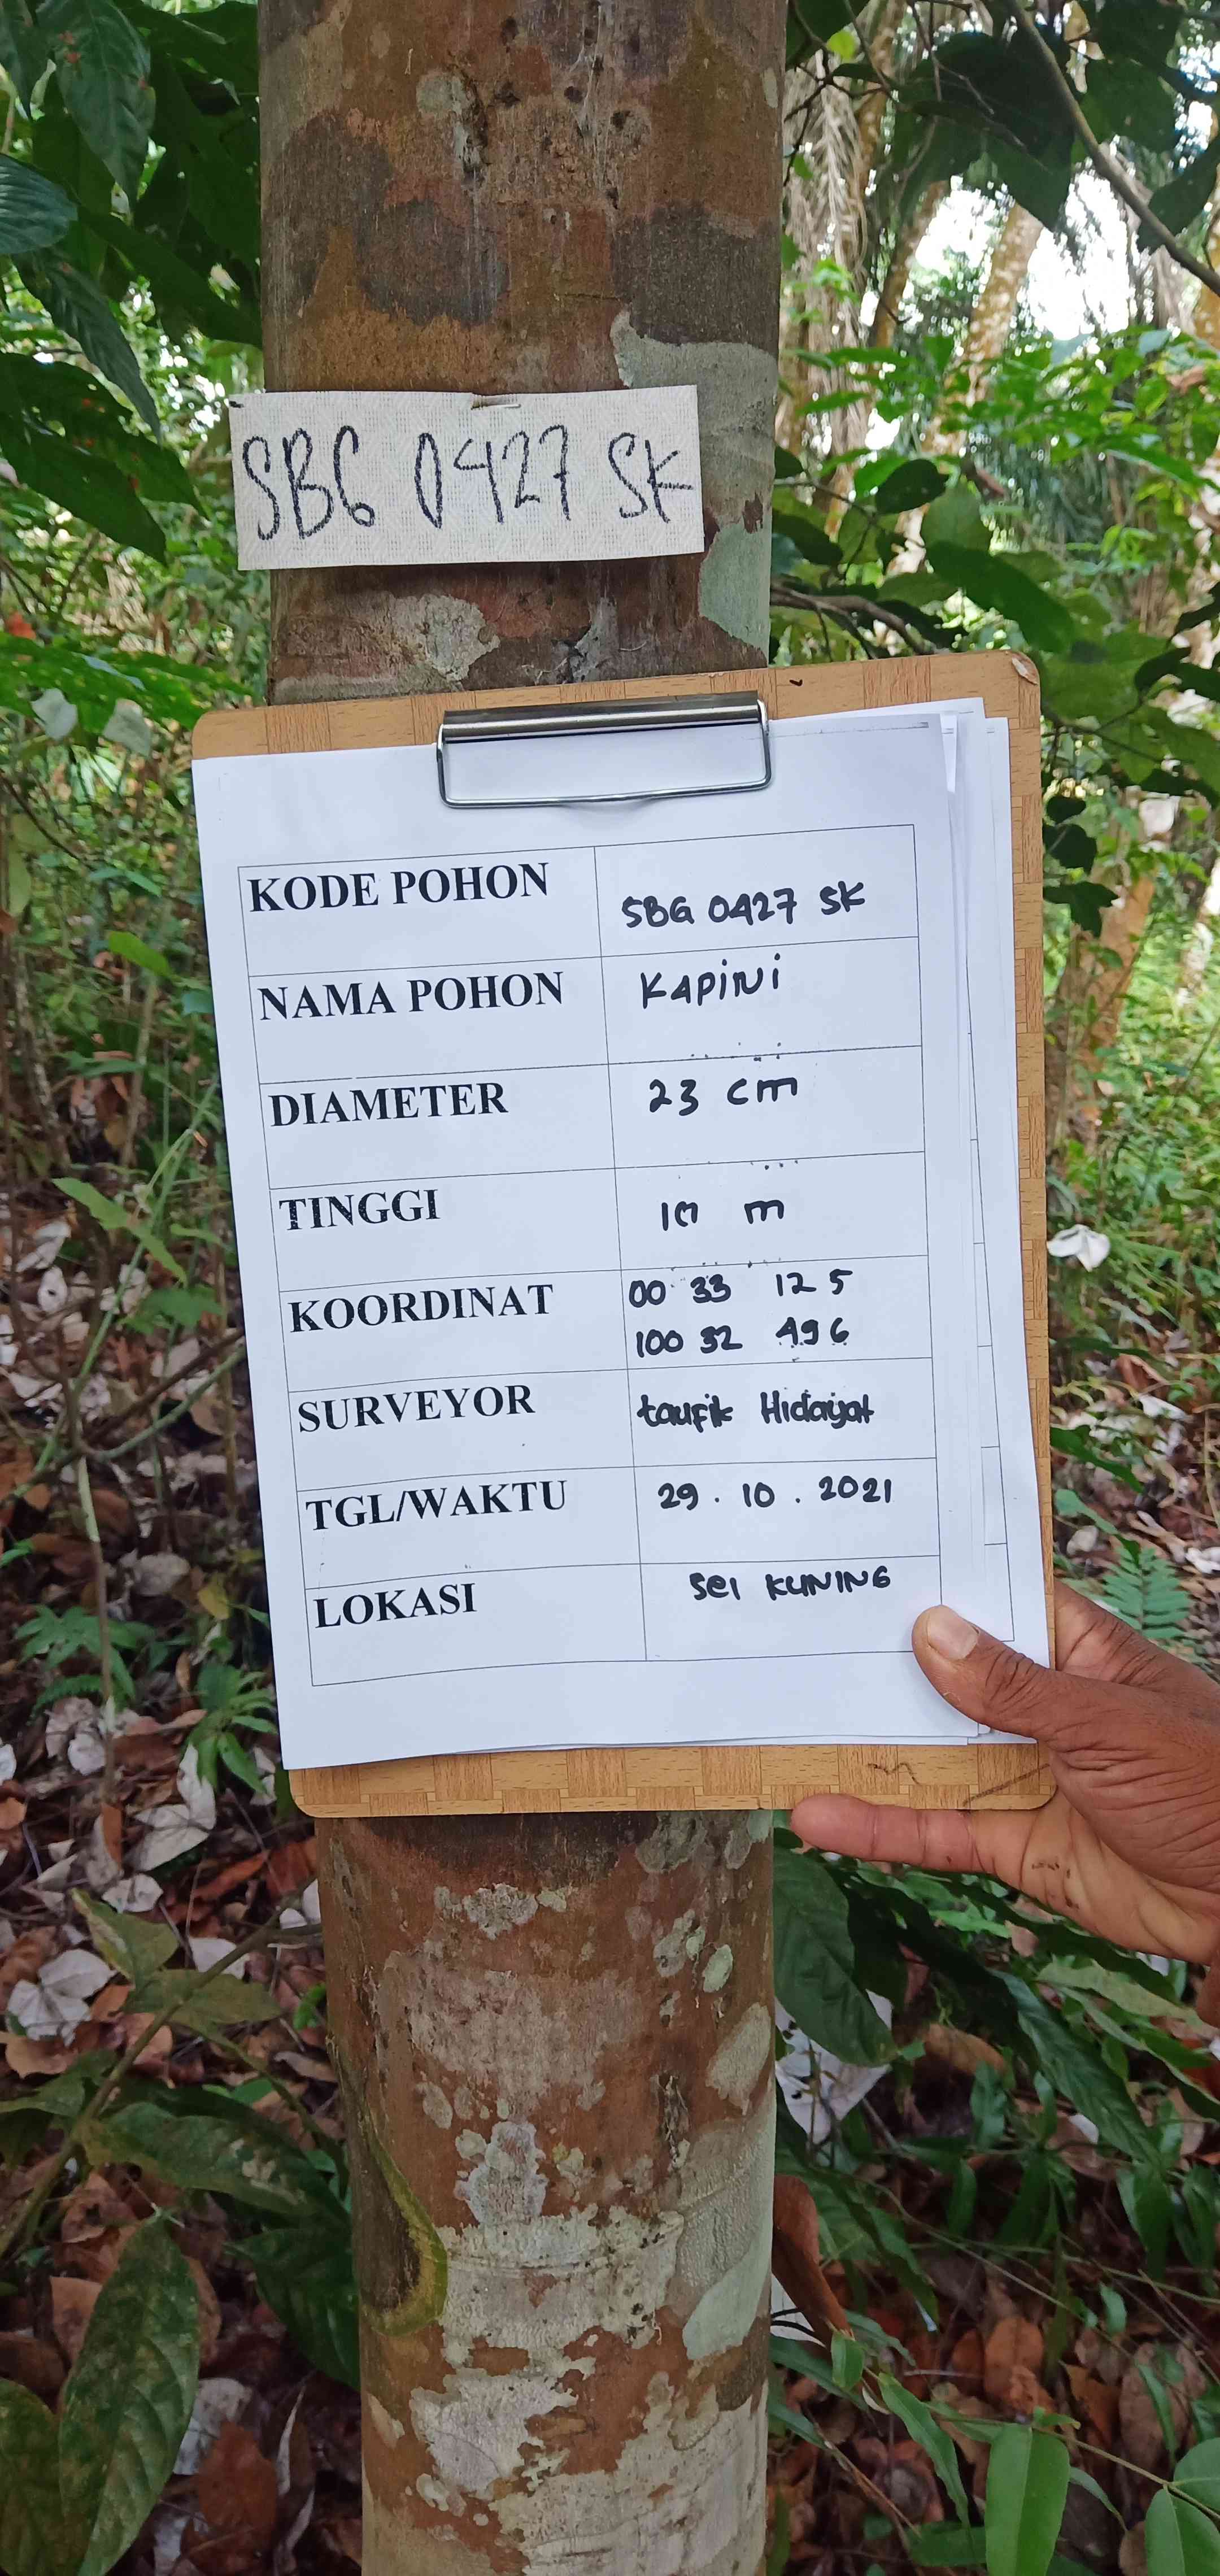 SBG 0427 SK
KODE POHON SBG 0427 SK
NAMA POHON KAPINI
DIAMETER 23 cm
TINGGI m
KOORDINAT 00 33 12 5
100 32 49 6
SURVEYOR taufik Hidayat
TGL/WAKTU 29 . 10 . 2021
LOKASI Sei KUNING